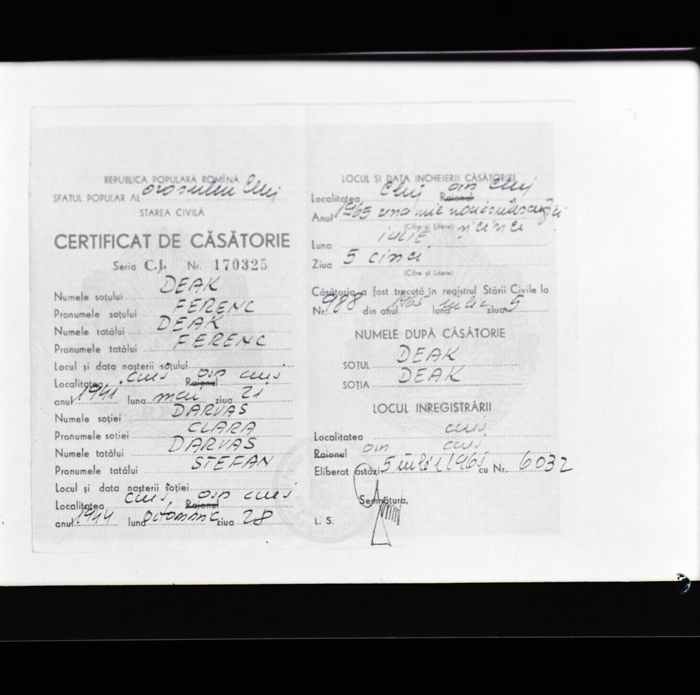 REPUBLICA POPULARĂ ROMÎNĂ
SFATUL POPULAR AL orasului Cluj
STAREA CIVILĂ
CERTIFICAT DE CĂSĂTORIE
Seria C.J. Nr. 170325
Numele soțului DEAK
Pronumele soțului FERENC
Numele tatălui DEAK
Pronumele tatălui FERENC
Locul și data nașterii soțului
Localitatea Cluj Raionul Cluj
anul 1941 luna mai ziua 21
Numele soției DARVAS
Pronumele soției CLARA
Numele tatălui DARVAS
Pronumele tatălui STEFAN
Locul și data nașterii soției
Localitatea Cluj Raionul Cluj
anul 1944 luna octombrie ziua 28
LOCUL SI DATA INCHEIERII CĂSĂTORIEI
Localitatea Cluj Raionul Cluj
Anul 1965 una mie nouasutesaizeci
(Cifre și Litere) si cinci
Luna IULIE
Ziua 5 cinci
(Cifre și Litere)
Căsătoria a fost trecută în registrul Stării Civile la
Nr. 988 din anul 1965 luna iulie ziua 5
NUMELE DUPĂ CĂSĂTORIE
SOȚUL DEAK
SOȚIA DEAK
LOCUL INREGISTRĂRII
Localitatea Cluj
Raionul Cluj
Eliberat astăzi 5 iulie 1965 cu Nr. 6032
Semnătura,
L. S.